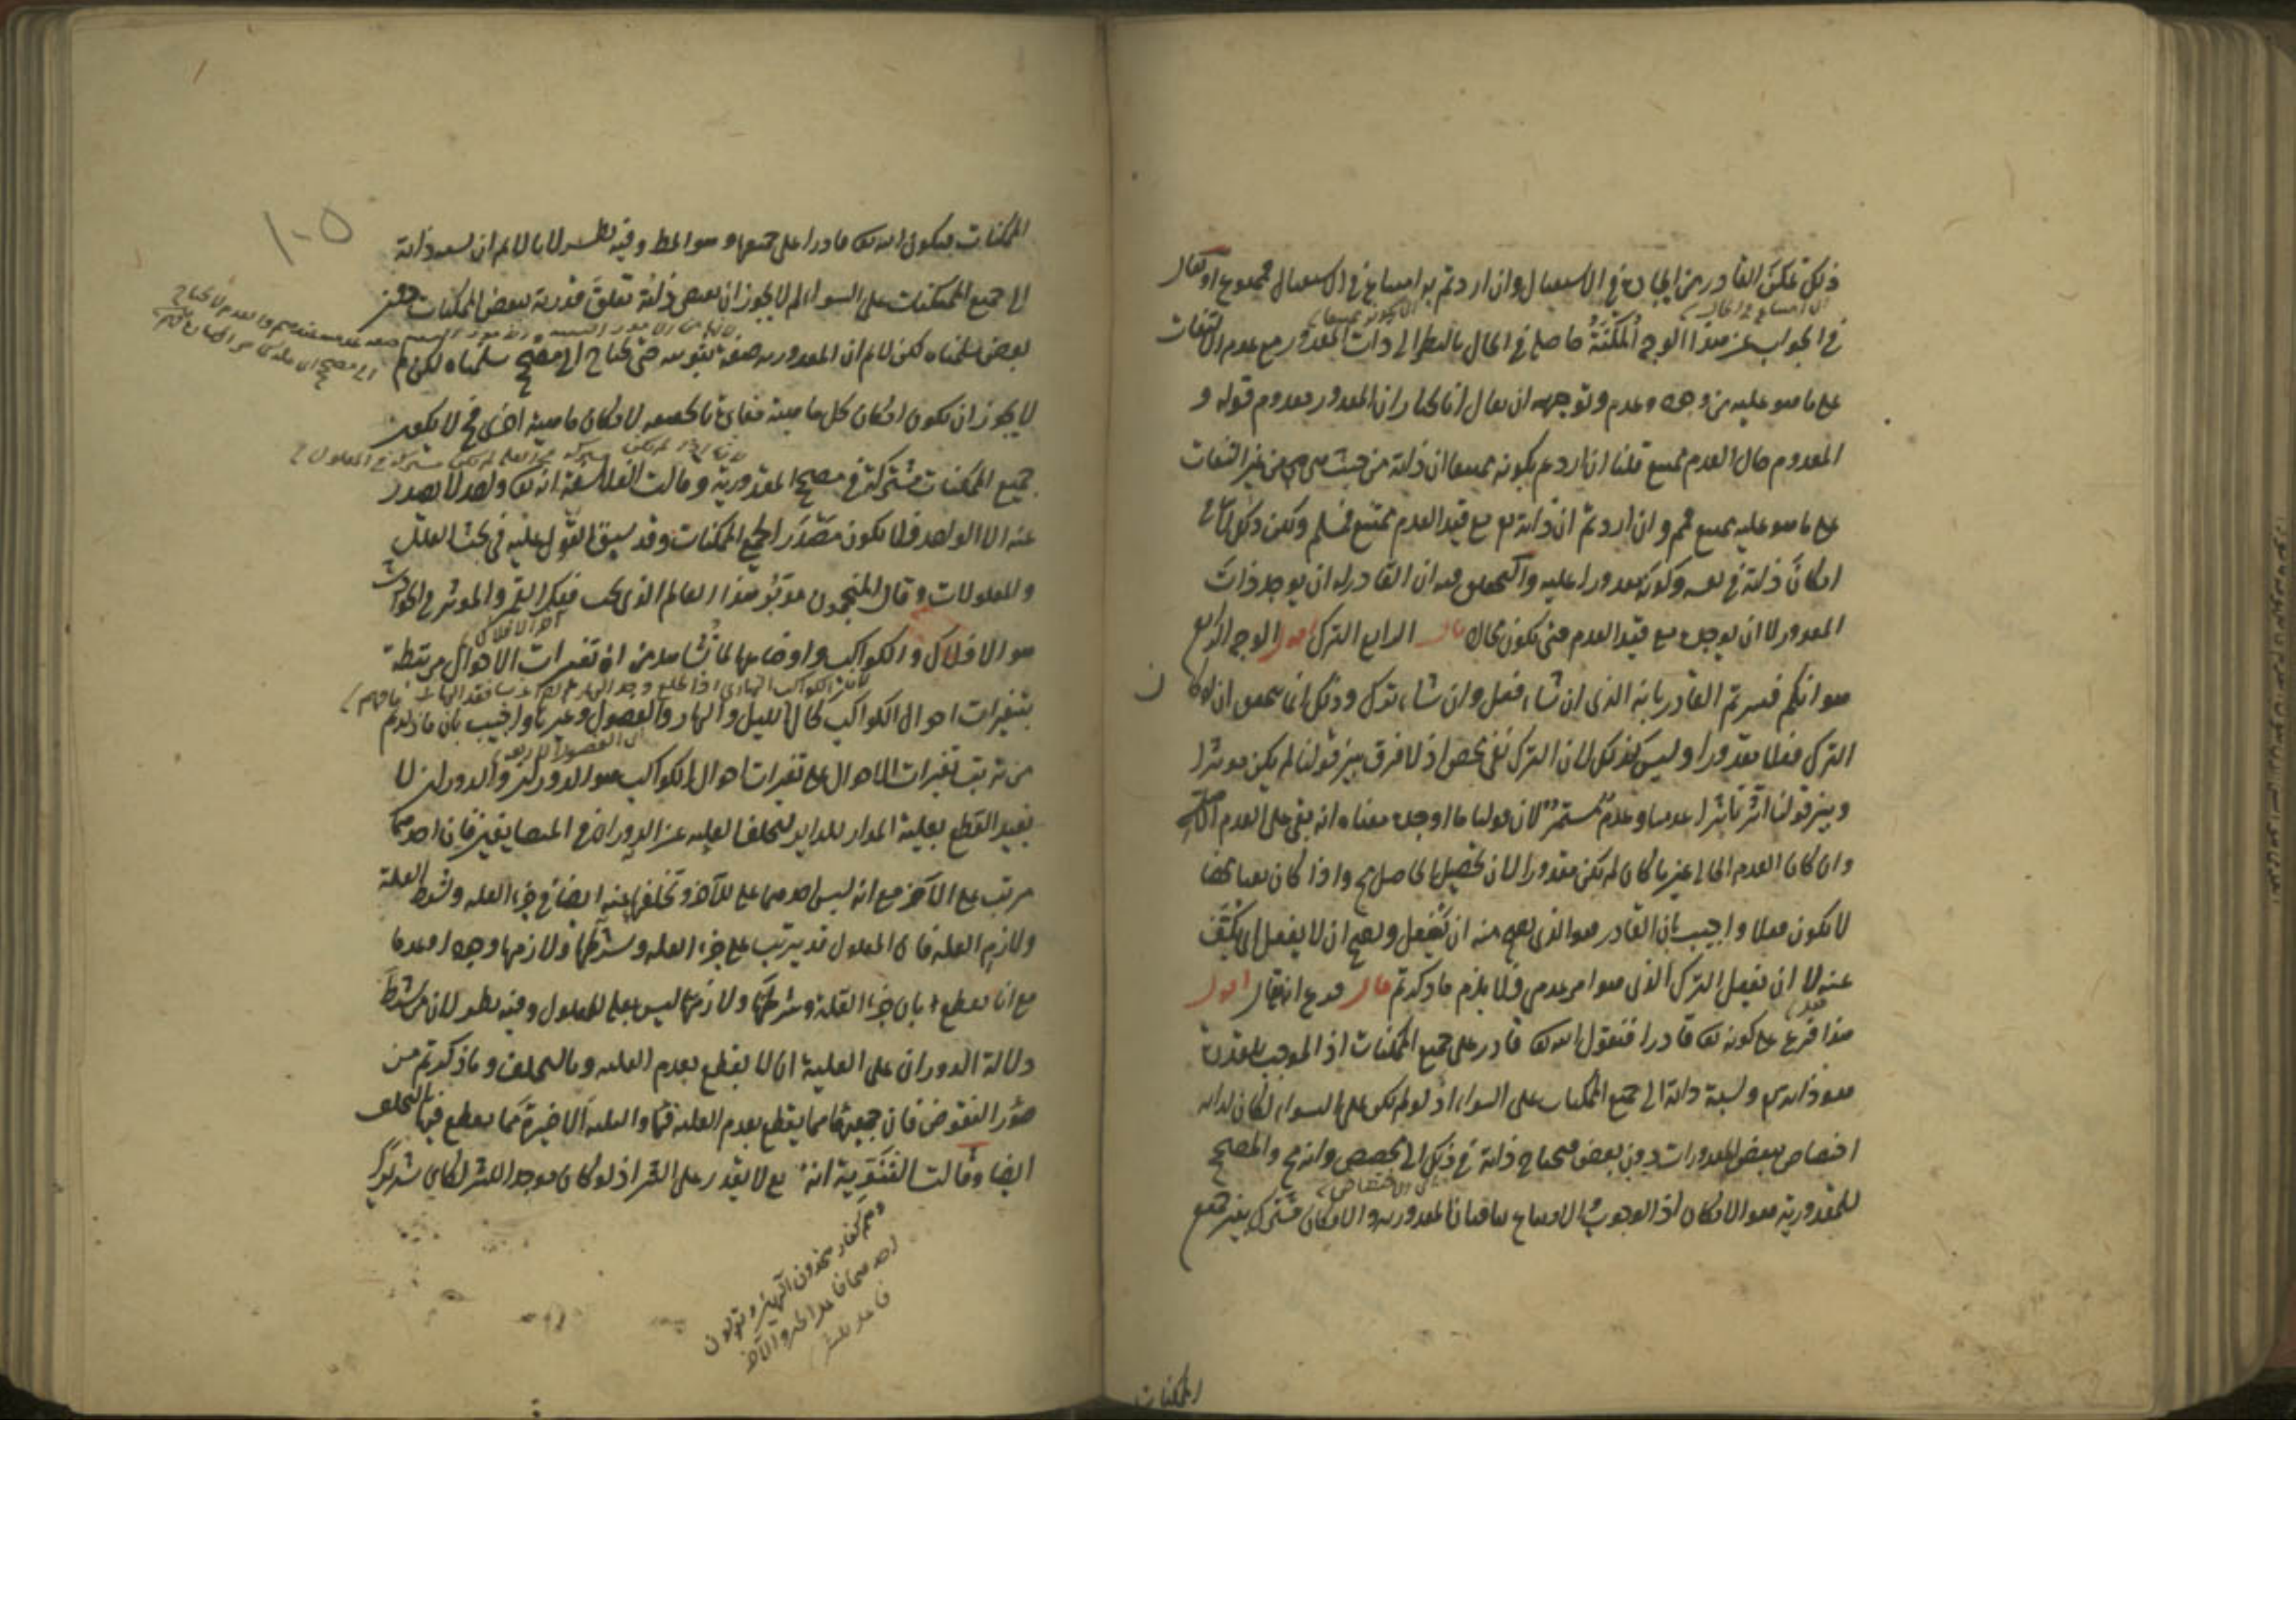 ذلك تمكن القادر من ايجاده في الاستقبال وان اردتم به امتناع في الاستقبال فممنوع او يقال
في الجواب عن هذا الوجه المكنة حاصلة في الحال بالنظر الى ذات المقدور مع عدم التفات
على ما هو عليه من وجود وعدم وتوجيهه ان يقال انا نختار ان المقدور معدوم قوله و
المعدوم حال العدم ممتنع قلنا ان اردتم بكونه ممتنعا ان ذاته من حيث هي هي من غير التفات
على ما هو عليه ممتنع فمم وان اردتم ان ذاته مع قيد العدم ممتنع فمسلم ولكن ذلك لا ينافي
امكان ذاته في نفسه وكونه مقدورا عليه والتحقيق فيه ان القادر له ان يوجد ذات
المقدور لا ان يوجده مع قيد العدم حتى يكون محالا قال الرابع الترك اقول الوجه الرابع
هو انكم فسرتم القادر بانه الذي ان شاء فعل وان شاء ترك وذلك انما يتحقق ان لو كان
الترك فعلا مقدورا وليس كذلك لان الترك نفي محض اذ لا فرق بين قولنا لم يكن مؤثرا
وبين قولنا اثر تاثيرا عدميا وعدم مستمر لان قولنا ما اوجد معناه انه بقي على العدم الاصلي
وان كان العدم الحالي عين ما كان لم يكن مقدورا لان تحصيل الحاصل مح واذا كان نفيا محضا
لا يكون فعلا واجيب بان القادر هو الذي يصح منه ان يفعل ويصح ان لا يفعل اي يكف
عنه لا ان يفعل الترك الذي هو امر عدمي فلا يلزم ما ذكرتم قال فرع انه تعالى اقول
هذا فرع على كونه تعالى قادرا فنقول الله تعالى قادر على جميع الممكنات اذ الموجب للقدرة
هو ذاته تع ونسبة ذاته الى جميع الممكنات على السواء اذ لو لم تكن على السواء لكان لذاته
اختصاص ببعض المقدورات دون بعض فيحتاج ذاته في ذلك الى مخصص وانه مح والمصحح
للمقدورية هو الامكان اذ الوجوب والامتناع ينافيان المقدورية والامكان مشترك بين جميع
الممكنات
الممكنات فيكون الله تعالى قادرا على جميعها وهو المط وفيه نظر لانا لا نم ان نسبة ذاته
الى جميع الممكنات على السواء لم لا يجوز ان يقتضي ذاته تعلق قدرته ببعض الممكنات دون
بعض سلمناه لكن لا نم ان المقدورية صفة ثبوتية حتى يحتاج الى مصحح سلمناه لكن لم
لا يجوز ان يكون امكان كل ماهية مغايرا بالحقيقة لامكان ماهية اخرى فح لا يكون
جميع الممكنات مشتركة في مصحح المقدورية وقالت الفلاسفة انه تعالى واحد لا يصدر
عنه الا الواحد فلا يكون مصدرا لجميع الممكنات وقد سبق القول عليه في بحث العلل
والمعلولات وقال المنجمون مدبر هذا العالم الذي تحت فلك القمر والمؤثر في الحوادث
هو الافلاك والكواكب واوضاعها لما نشاهد من ان تغيرات الاحوال مرتبطة
بتغيرات احوال الكواكب كحال الليل والنهار والفصول وغيرها واجيب بان ما ذكرتم
من ترتب تغيرات الاحوال على تغيرات احوال الكواكب هو الدوران والدوران لا
يفيد القطع بعلية المدار للدائر لتخلف العلية عن الدوران في المتضايفين فان احدهما
مرتب على الآخر مع انه ليس احدهما علة للآخر وتخلفها عنه ايضا في جزء العلة وشرط العلة
ولازم العلة فان المعلول قد يترتب على جزء العلة وشرطها ولازمها وجودا وعدما
مع انا نقطع بان جزء العلة وشرطها ولازمها ليس بعلة للمعلول وفيه نظر لان من شرط
دلالة الدوران على العلية ان لا يقطع بعدم العلية وبالتخلف وما ذكرتم من
صور النقوض فان جميعها مما يقطع بعدم العلية فيها والثلثة الاخيرة مما يقطع فيها بالتخلف
ايضا وقالت الثنوية انه تع لا يقدر على الشر اذ لو كان موجدا للشر لكان شريرا
وهم كفار يتخذون الهين ويقولون
احدهما فاعل الخير والآخر
فاعل للشر